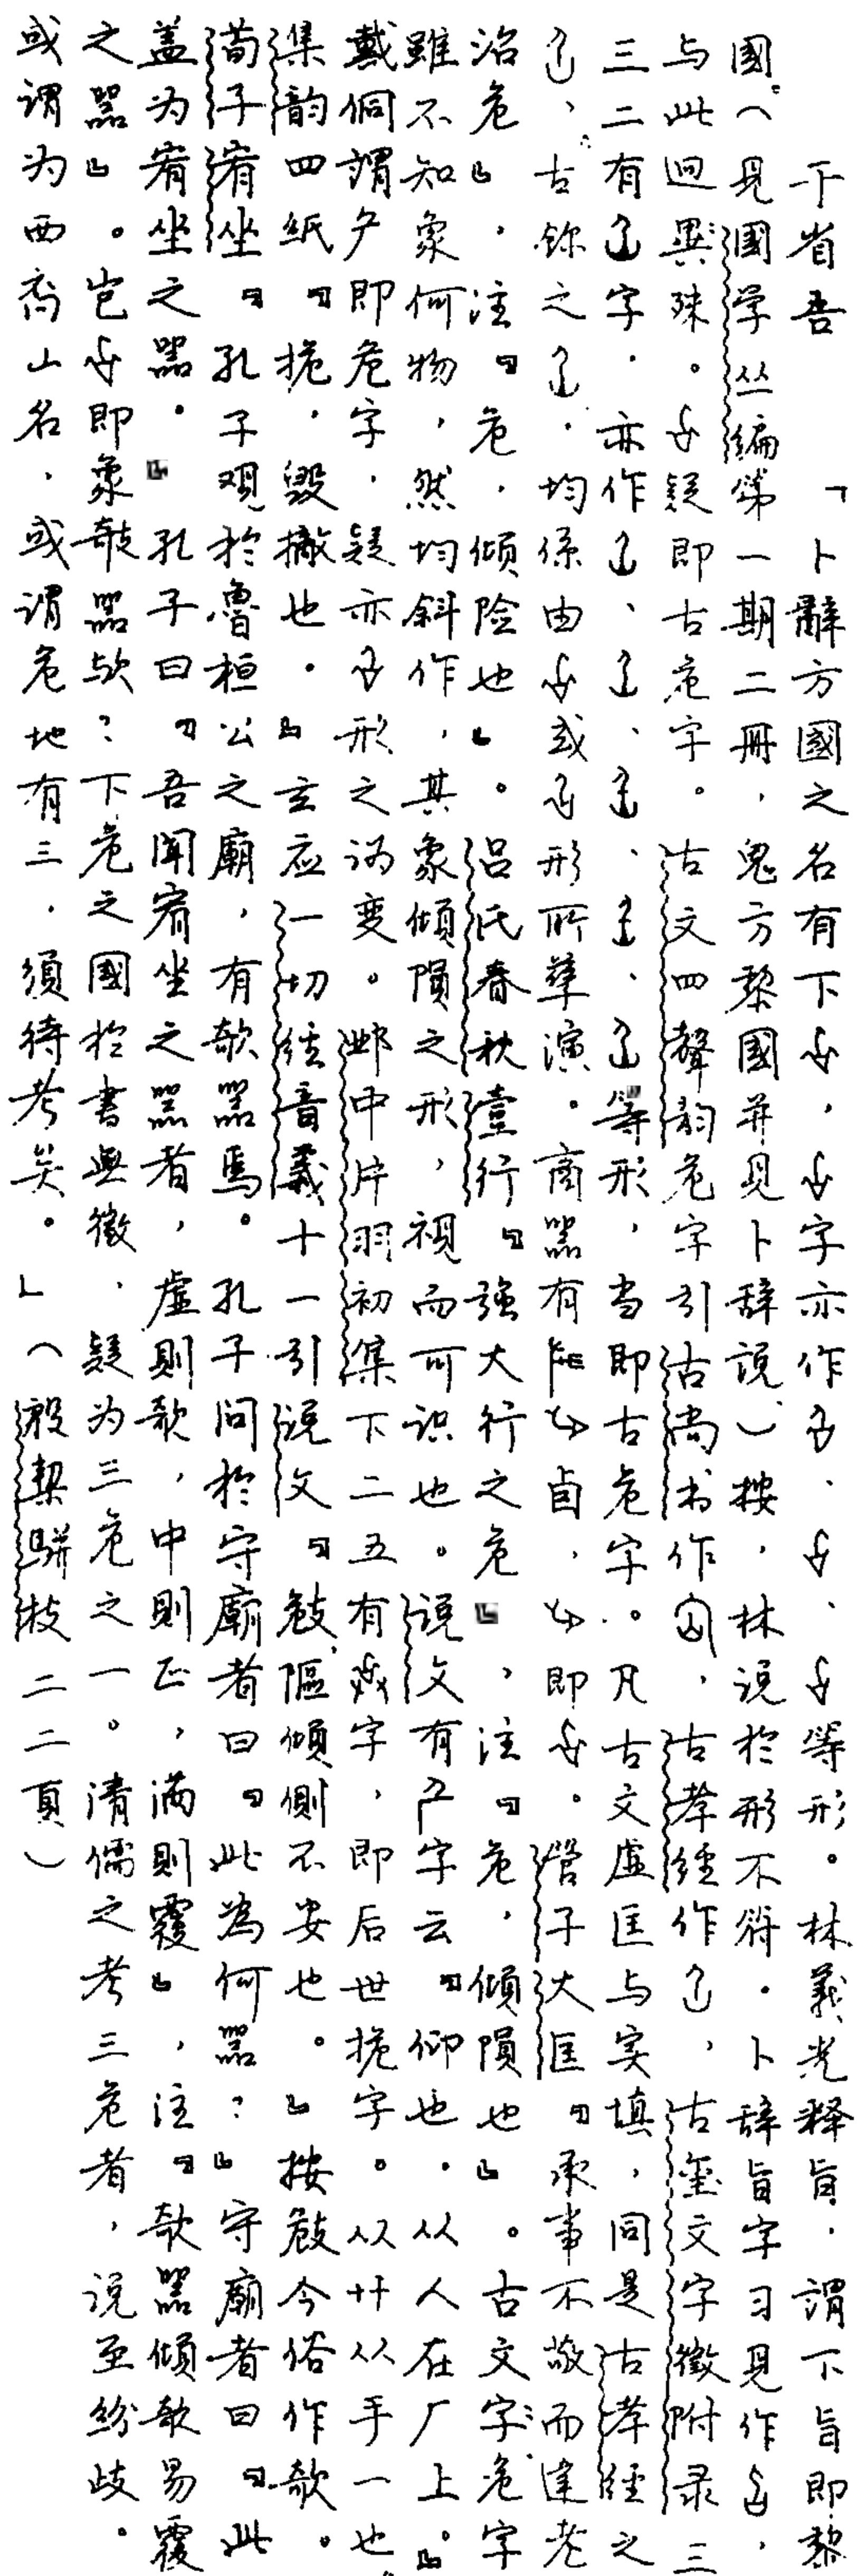 于省吾 「卜辭方國之名有下，字亦作、、等形。林義光釋旨，謂下旨即黎
國（見國学丛编第一期二冊，鬼方黎國并見卜辞説）按，林说於形不符。卜辞旨字习見作，
与此迥異殊。疑即古危字。古文四聲韵危字引古尚书作，古孝经作，古璽文字徵附录三
三二有字，亦作、、、、等形，当即古危字。凡古文虚匡与实填，同是古孝经之
，古鉨之，均係由或形所孳演。商器有卣，即。管子大匡『承事不敬而違老
治危』，注『危，傾险也』。吕氏春秋壹行『強大行之危』，注『危，傾隕也』。古文字危字
雖不知象何物，然均斜作，其象傾隕之形，視而可识也。说文有字云『仰也，从人在厂上。』
戴侗謂即危字，疑亦形之讹变。邺中片羽初集下二五有字，即后世㧪字。从廾从手一也，
集韵四纸『㧪，毁撤也。』玄应一切经音義十一引说文『攲傴傾側不安也。』按攲今俗作欹。
荀子宥坐『孔子观於魯桓公之廟，有欹器焉。孔子问於守廟者曰『此為何器？』守廟者曰『此
盖为宥坐之器。』孔子曰『吾闻宥坐之器者，虚則欹，中則正，满則覆』，注『欹器傾欹易覆
之器』。岂即象攲器欤？下危之國於書無徵，疑为三危之一。清儒之考三危者，说至紛歧。
或谓为西裔山名，或谓危地有三，須待考矣。」（殷契駢枝二二頁）